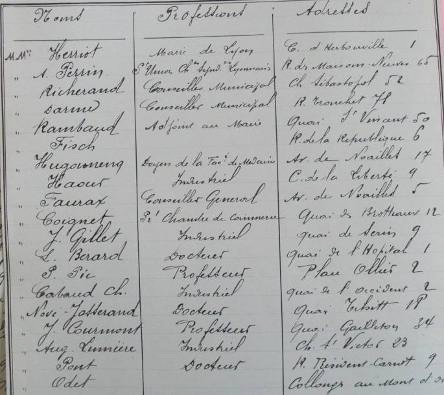 Noms Professions Adresses
MMrs Herriot Maire de Lyon C. d'Herbouville 1
" A. Perrin Pt Union Ch. Synd. Lyonnaises R. des Maisons-Neuves 65
" Richerand Conseiller Municipal Ch. Sébastopol 52
" Sarme Conseiller Municipal R. Tronchet 71
" Rambaud Adjoint au Maire Quai St Vincent 50
" Fisch R. de la République 6
" Hugounenq Doyen de la Fac. de Médecine Av. de Noailles 17
" Haour Industriel C. de la Liberté 9
" Faurax Conseiller Général Av. de Noailles 5
" Coignet Pt Chambre de Commerce Quai des Brotteaux 12
" J. Gillet Industriel quai de Serin 9
" L. Bérard Docteur quai de l'Hopital 1
" P. Pic Professeur Place Ollier 2
" Cabaud Ch. Industriel quai de l'occident 2
" Nové-Josserand Docteur Quai Tilsitt
" J. Courmont Professeur Quai Gailleton
" Aug. Lumière Industriel Ch. St Victor 23
" Pont Docteur R. Président-Carnot 9
" Odet Collonges au Mont d'